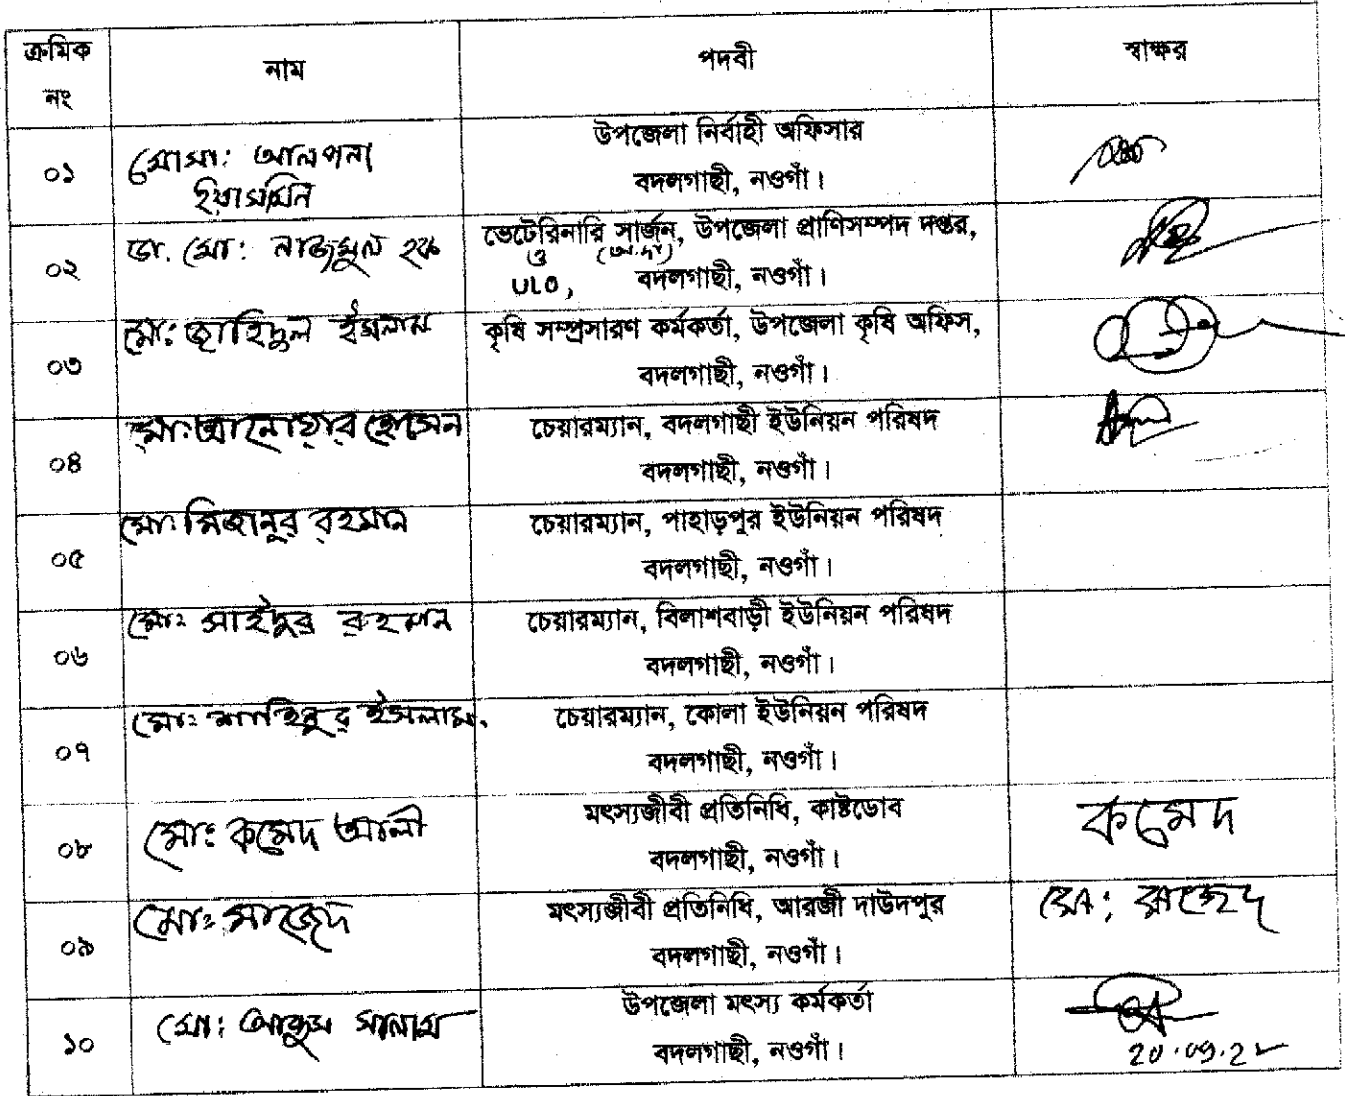 ক্রমিক নং নাম পদবী স্বাক্ষর
০১ মোসা: আলপনা ইয়াসমিন উপজেলা নির্বাহী অফিসার
বদলগাছী, নওগাঁ।
০২ ডা. মো: নাজমুল হক ভেটেরিনারি সার্জন, উপজেলা প্রাণিসম্পদ দপ্তর,
ও (অ.দা)
ULO, বদলগাছী, নওগাঁ।
০৩ মো: জাহিদুল ইসলাম কৃষি সম্প্রসারণ কর্মকর্তা, উপজেলা কৃষি অফিস,
বদলগাছী, নওগাঁ।
০৪ মো: আনোয়ার হোসেন চেয়ারম্যান, বদলগাছী ইউনিয়ন পরিষদ
বদলগাছী, নওগাঁ।
০৫ মো: মিজানুর রহমান চেয়ারম্যান, পাহাড়পুর ইউনিয়ন পরিষদ
বদলগাছী, নওগাঁ।
০৬ মো: সাইদুর রহমান চেয়ারম্যান, বিলাশবাড়ী ইউনিয়ন পরিষদ
বদলগাছী, নওগাঁ।
০৭ মো: শাহিনুর ইসলাম. চেয়ারম্যান, কোলা ইউনিয়ন পরিষদ
বদলগাছী, নওগাঁ।
০৮ মো: কমেদ আলী মৎস্যজীবী প্রতিনিধি, কাষ্টডোব কমেদ
বদলগাছী, নওগাঁ।
০৯ মো: সাজেদ মৎস্যজীবী প্রতিনিধি, আরজী দাউদপুর মো: সাজেদ
বদলগাছী, নওগাঁ।
১০ মো: আব্দুস সালাম উপজেলা মৎস্য কর্মকর্তা
বদলগাছী, নওগাঁ।